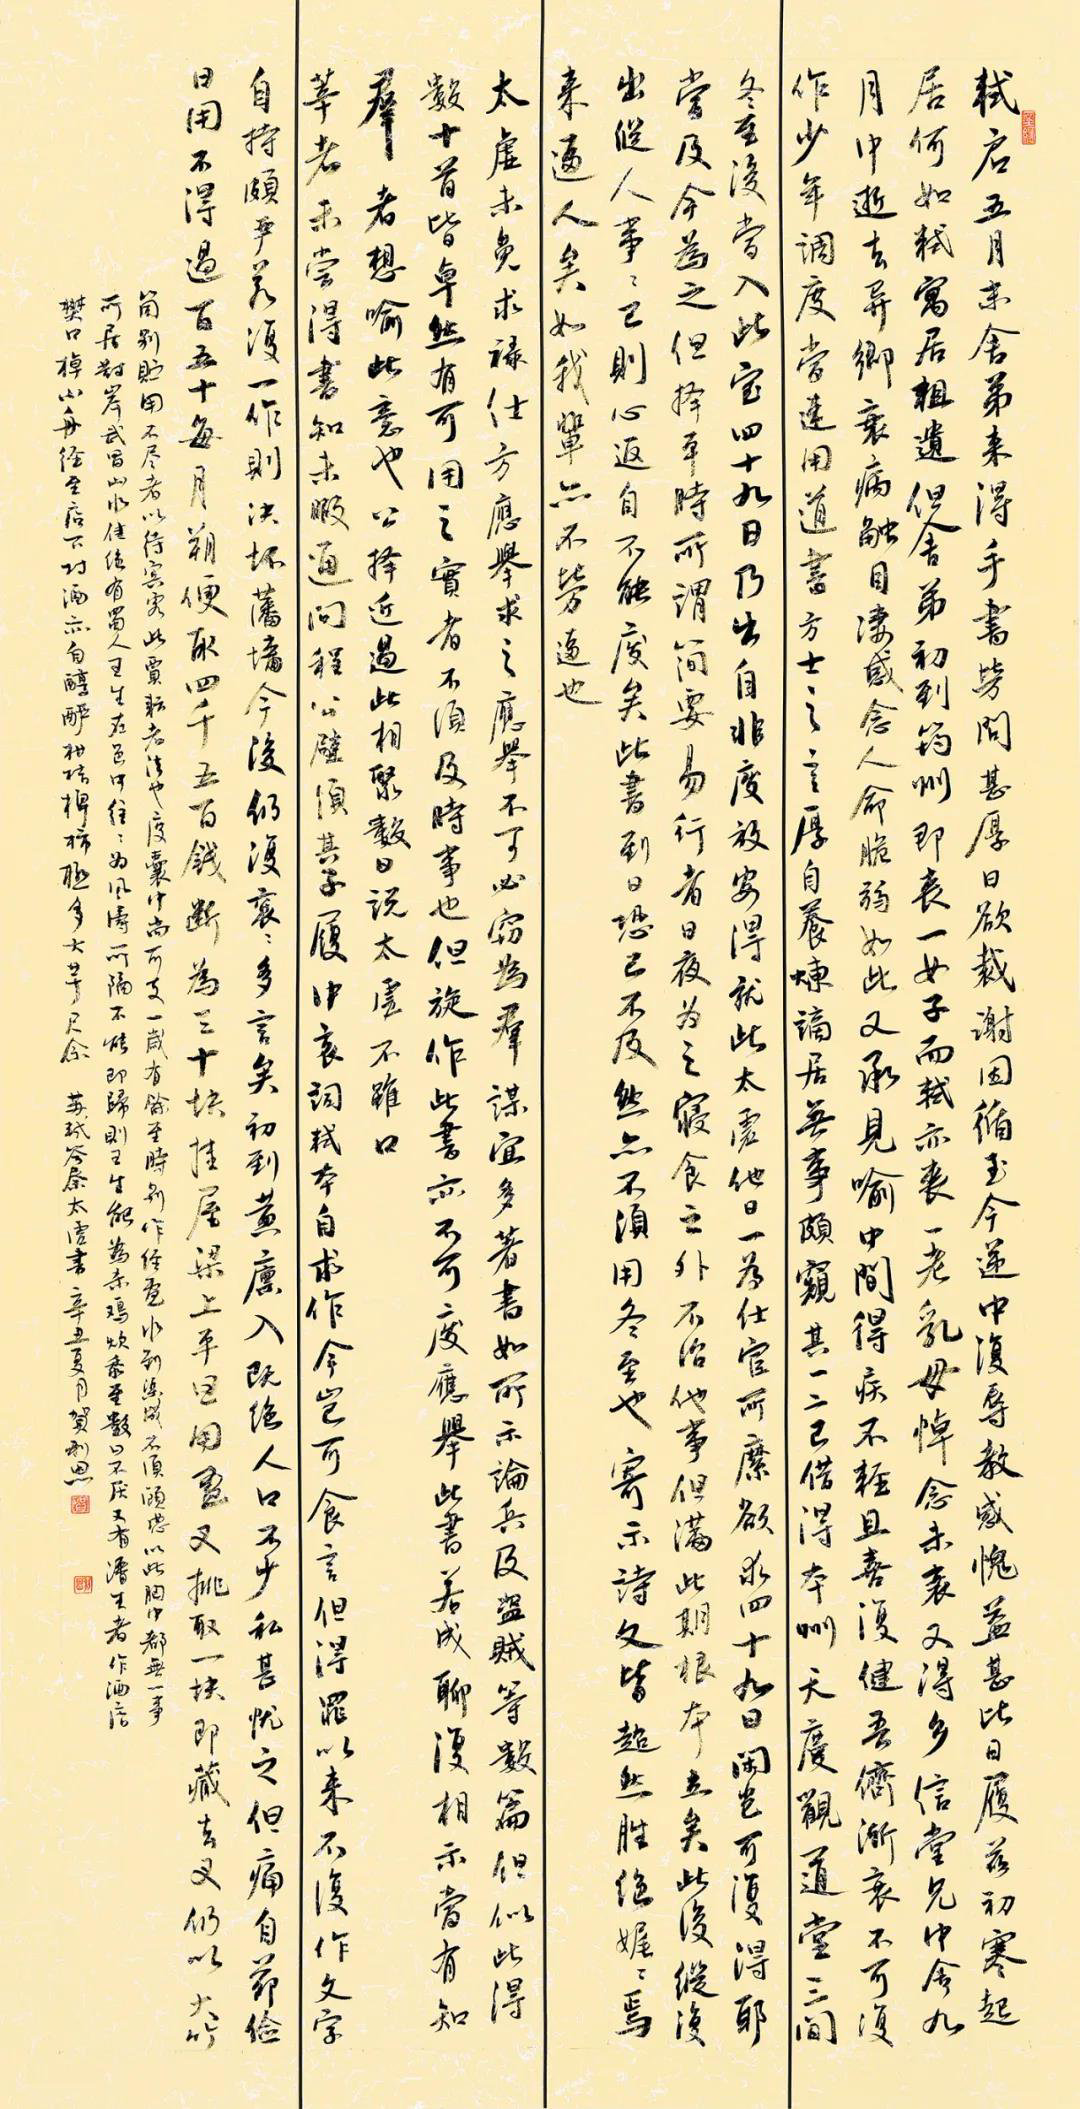 軾启五月末舍弟来得手書勞問甚厚日欲裁謝因循至今遞中復辱教感愧益甚此日履兹初寒起
居何如軾寓居粗遣但舍弟初到筠州即喪一女子而軾亦喪一老乳母悼念未衰又得乡信堂兄中舍九
月中逝去异鄉衰病触目凄感念人命脆弱如此又承見喻中間得疾不輕且喜復健吾儕漸衰不可復
作少年調度當速用道書方士之言厚自養煉謫居無事頗窺其一二已借得本州天慶觀道堂三间
冬至後當入此室四十九日乃出自非废放安得就此太虚他日一为仕宦所縻欲求四十九日閑豈可復得耶
當及今為之但择平時所謂简要易行者日夜为之寢食之外不治他事但滿此期根本立矣此後縱復
出從人事事已則心返自不能废矣此書到日恐已不及然亦不須用冬至也寄示詩文皆超然胜绝娓娓焉
来逼人矣如我輩亦不勞逼也
太虚未免求禄仕方應舉求之應舉不可必窃為君謀宜多著書如所示論兵及盗賊等数篇但似此得
数十首皆卓然有可用之實者不須及時事也但旋作此書亦不可废應舉此書若成聊復相示當有知
君者想喻此意也公择近過此相聚数日說太虚不離口
莘老未尝得書知未暇通问程公辟須其子履中哀詞軾本自求作今豈可食言但得罪以来不復作文字
自持頗严若復一作則决坏藩墙今後仍復衮衮多言矣初到黄廪入既绝人口不少私甚忧之但痛自节俭
日用不得過百五十每月朔便取四千五百錢断為三十块挂屋梁上平旦用画叉挑取一块即藏去叉仍以大竹
筒别貯用不尽者以待宾客此賈耘老法也度囊中尚可支一歲有餘至時别作经画水到渠成不須顧虑以此胸中都無一事
所居對岸武昌山水佳绝有蜀人王生在邑中往往为风涛所隔不能即歸則王生能為杀鸡炊黍至数日不厌又有潘生者作酒店
樊口棹小舟径至店下村酒亦自醇酽柑橘椑柿極多大芋长尺余 苏軾答秦太虚書 辛丑夏月贺